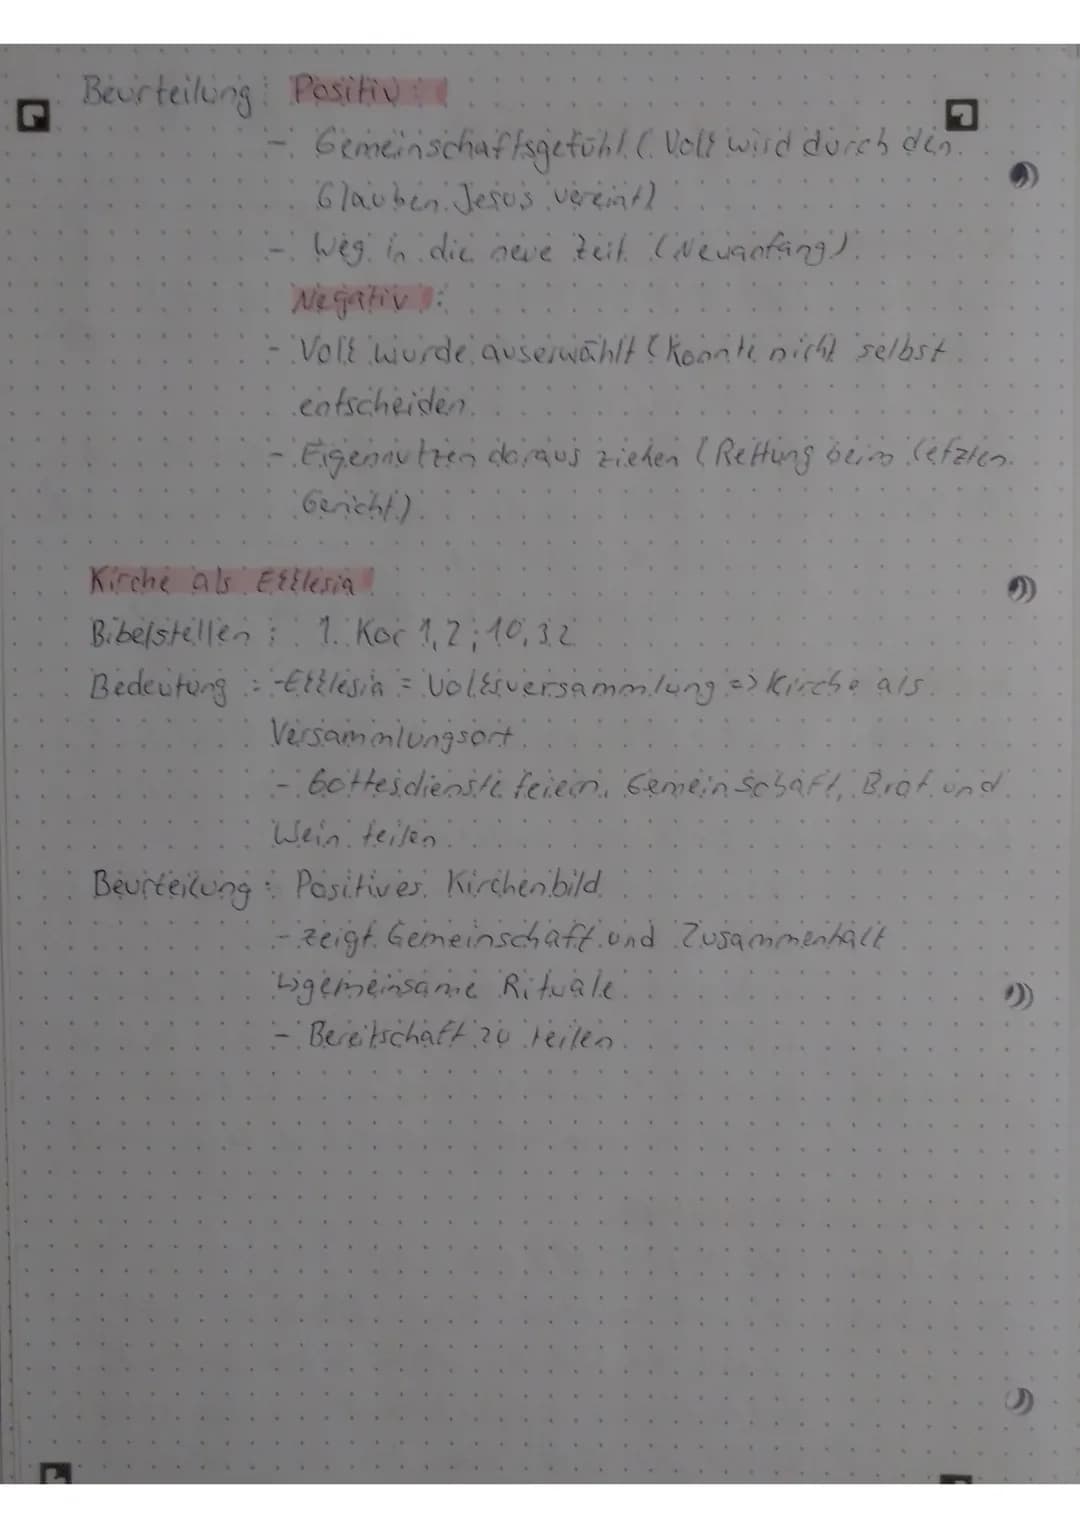 Beurteilung: Positiv:
- Gemeinschaftsgefühl (Volk wird durch den
Glauben Jesus vereint)
- Weg in die neue Zeit (Neuanfang)
Negativ:
- Volk wurde auserwählt (konnte nicht selbst
entscheiden
- Eigennutzen daraus ziehen (Rettung beim letzten
Gericht)
Kirche als Ekklesia
Bibelstellen: 1. Kor 1,2; 10,32
Bedeutung: - Ekklesia = Volksversammlung => Kirche als
Versammlungsort
- Gottesdienste feiern, Gemeinschaft, Brot und
Wein teilen
Beurteilung: Positives Kirchenbild
- zeigt Gemeinschaft und Zusammenhalt
↳ gemeinsame Rituale
- Bereitschaft zu teilen